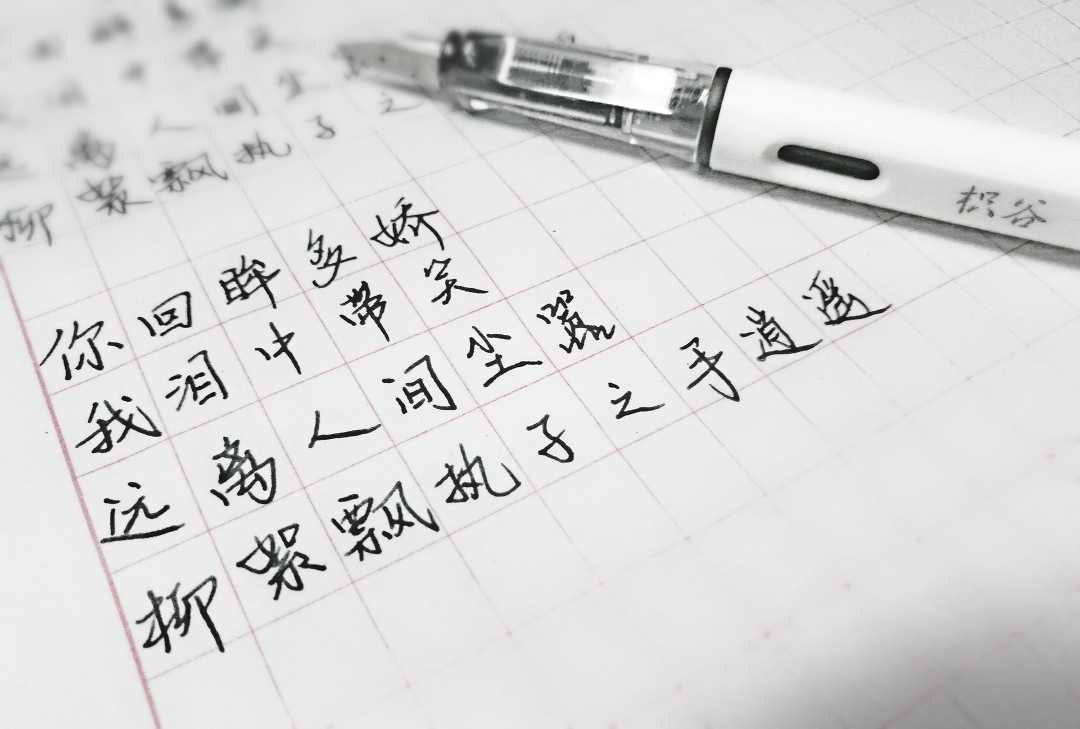 离 人 间 尘
柳絮飘执子之
你回眸多娇
我泪中带笑
远离人间尘嚣
柳絮飘执子之手逍遥
积谷